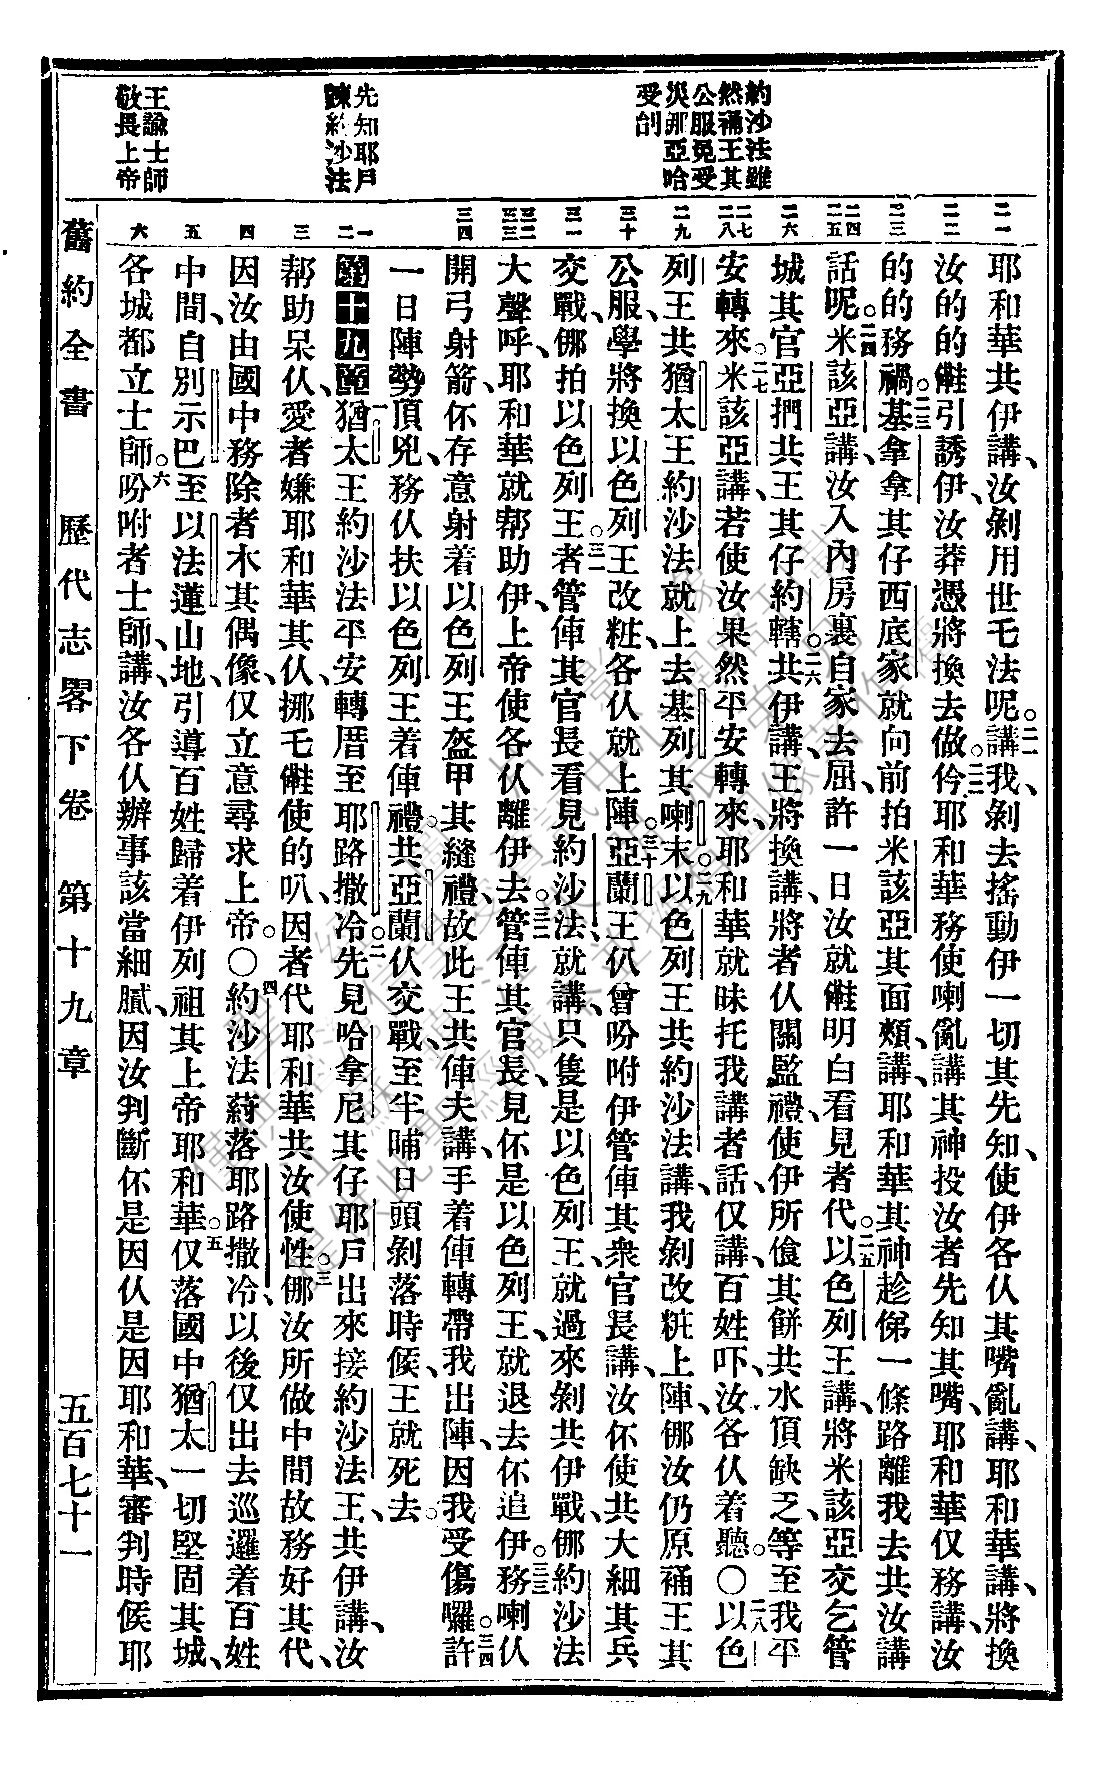 約沙法雖
然裲王其
公服免受
災那亞哈
受刣
先知耶戶
諫約沙法
王諭士師
敬畏上帝
二一
二二
二三
二四
二五
二六
二七
二八
二九
三十
三一
三二
三三
三四
一
二
三
四
五
六
耶和華共伊講、汝剝用世乇法呢。二一講我、剝去搖動伊一切其先知、使伊各仈其嘴亂講、耶和華講、將換
汝的的𠆧引誘伊、汝莽憑將換去做伱。二二耶和華務使喇亂講其神投汝者先知其嘴、耶和華仅務講、汝
的的務禍。二三基拿拿其仔西底家就向前拍米該亞其面頰、講、耶和華其神趁俤一條路離我去共汝講
話呢。二四米該亞講、汝入內房裏自家去屈、許一日汝就𠆧明白看見者代。二五以色列王講、將米該亞交乞管
城其官亞捫共王其仔約轄。二六共伊講、王將換講、將者仈關監禮、使伊所飡其餅共水頂缺乏、等至我平
安轉來。二七米該亞講、若使汝果然平安轉來、耶和華就昧托我講者話、仅講、百姓吓、汝各仈着聽。〇二八以色
列王共猶太王約沙法就上去基列其喇末。二九以色列王共約沙法講、我剝改粧上陣、㑚汝仍原裲王其
公服、學將換以色列王改粧、各仈就上陣。三十亞蘭王仈曾吩咐伊管俥其衆官長講、汝伓使共大細其兵
交戰、㑚拍以色列王。三一者管俥其官長看見約沙法、就講、只隻是以色列王、就過來剝共伊戰、㑚約沙法
大聲呼、耶和華就帮助伊、上帝使各仈離伊去。三二管俥其官長、見伓是以色列王、就退去伓追伊。三三務喇仈
開弓射箭、伓存意射着以色列王盔甲其縫禮、故此王共俥夫講、手着俥轉帶我出陣、因我受傷囉。三四許
一日陣勢頂兇、務仈扶以色列王着俥禮共亞蘭仈交戰、至半晡日頭剝落時候、王就死去。
第十九章一猶太王約沙法平安轉厝至耶路撒冷。二先見哈拿尼其仔耶戶出來接約沙法王、共伊講、汝
帮助呆仈、愛者嫌耶和華其仈、挪乇𠆧使的叭、因者代耶和華共汝使性。三㑚汝所做中間故務好其代、
因汝由國中務除者木其偶像、仅立意尋求上帝。〇四約沙法蒔落耶路撒冷、以後仅出去巡邏着百姓
中間、自別示巴至以法蓮山地、引導百姓歸着伊列祖其上帝耶和華。五仅落國中猶太一切堅固其城、
各城都立士師。六吩咐者士師講、汝各仈辦事該當細膩、因汝判斷伓是因仈是因耶和華、審判時候耶
舊約全書　歷代志畧下卷　第十九章　五百七十一